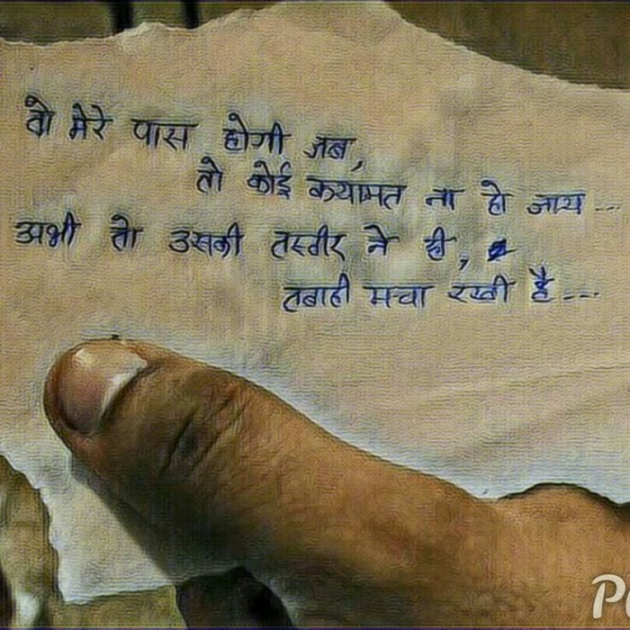 वो मेरे पास होगी जब,
तो कोई कयामत ना हो जाय ...
अभी तो उसकी तस्वीर ने ही,
तबाही मचा रखी है ...